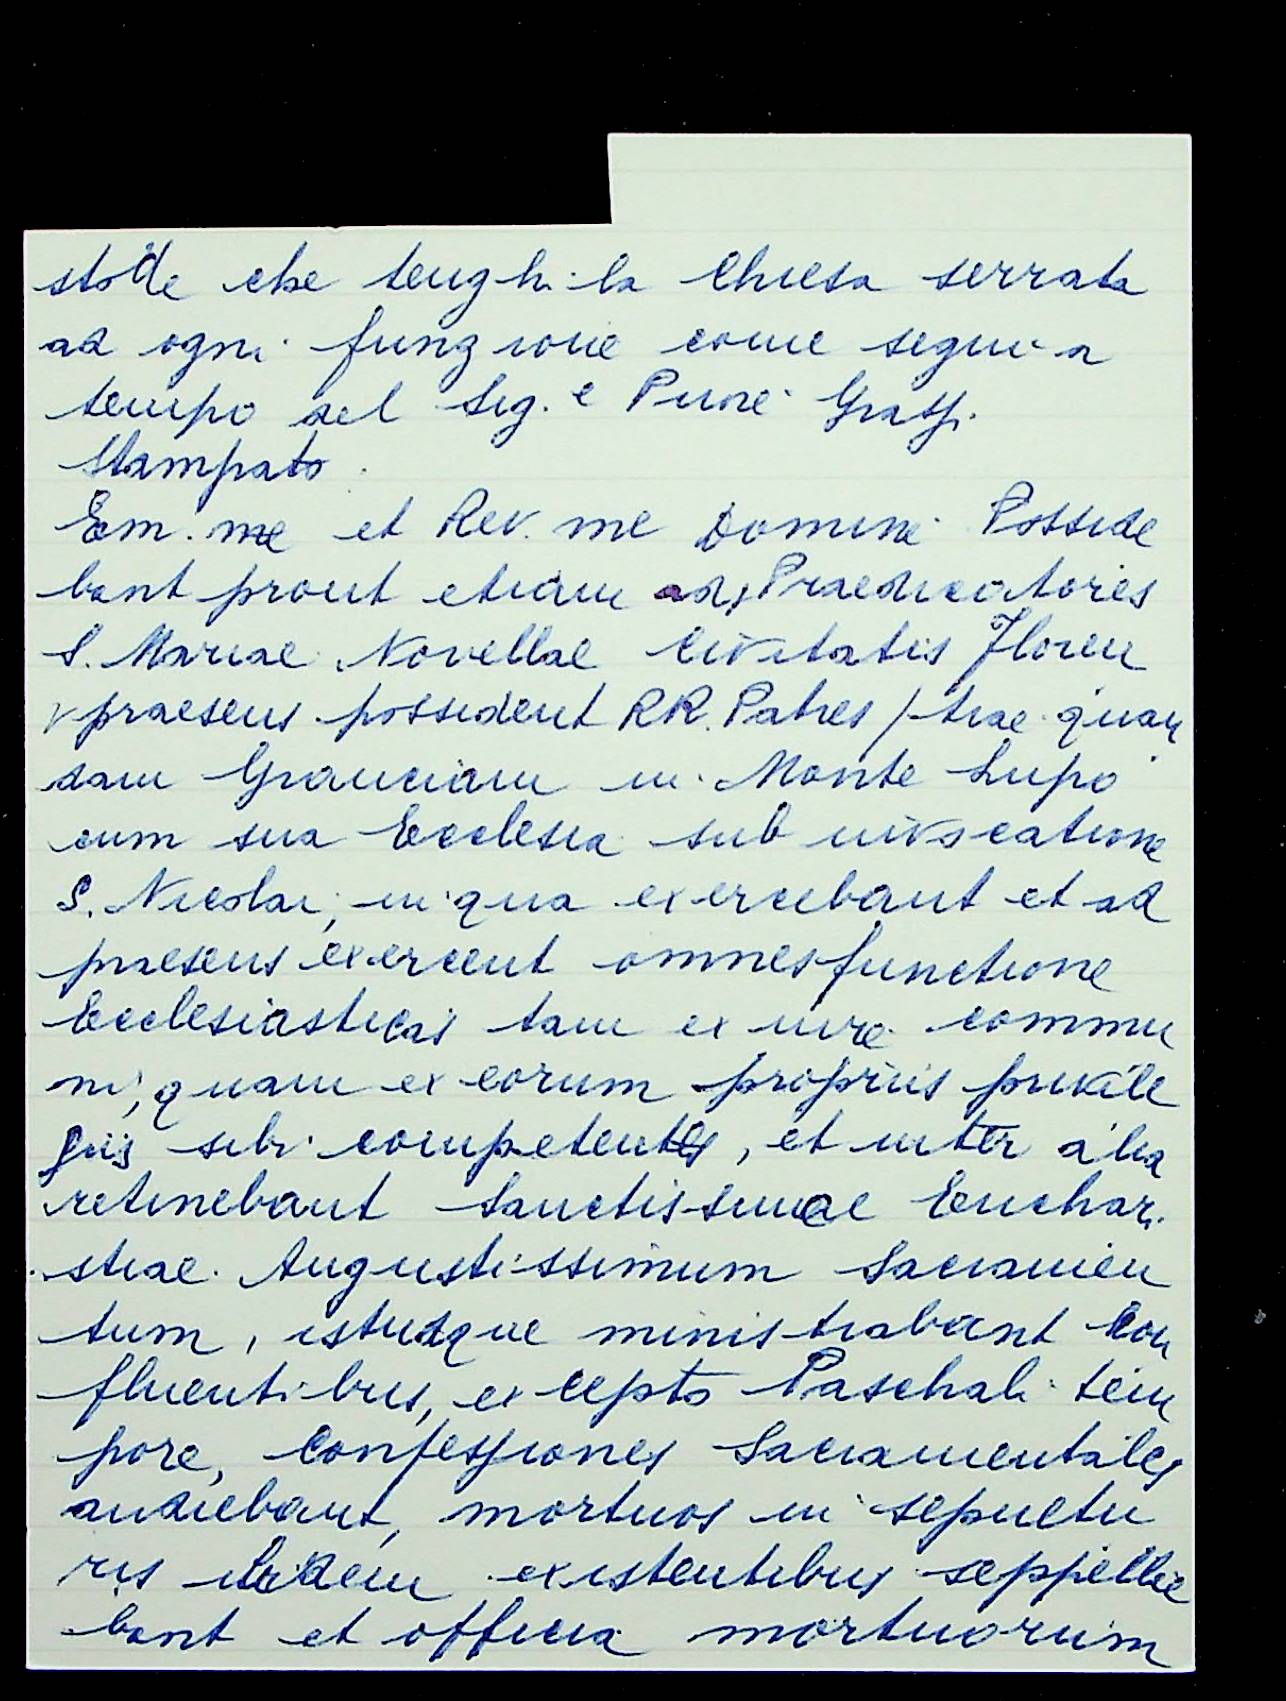 stode che tenghi la Chiesa serrata
ad ogni funzione come segui a
tempo del Sig.e Piore Grassi
Stampato.
Em.me et Rev.me Domine Posside
bant prout etiam ad, Praedicatores
S. Mariae Novellae Civitatis Floren
praesens possident RR. Patres / tiae quan
dam Granciam in Monte Lupo
cum sua Ecclesia sub invocatione
S. Nicolai, in qua exercebant et ad
praesens exercent omnes functione
Ecclesiasticas tam ex iure commu
ni, quam ex eorum propriis privile
giis sibi competentes, et inter alia
retinebant Sanctissimae Euchari
stiae Augustissimum Sacramen
tum, istudque ministrabant Con
fluentibus, excepto Paschali tem
pore, Confessiones Sacramentales
audiebant, mortuos in sepultu
ris ibidem existentibus seppellie
bant et officia mortuorum